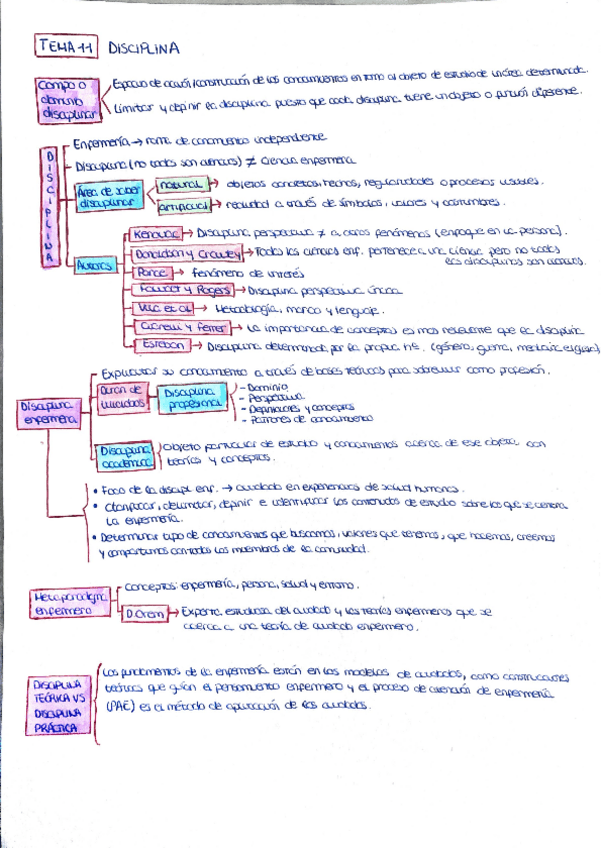 TEMA 11 DISCIPLINA
Campo o
dominio
disciplinar
Espacio de acción/construcción de los conocimientos en torno al objeto de estudio de un área determinada.
Limitar y definir la disciplina puesto que cada disciplina tiene un objeto o función diferente.
DISCIPLINA
Enfermería → rama de conocimiento independiente
Disciplina (no todas son ciencias) ≠ Ciencia enfermera
Área de saber
disciplinar
natural → objetos concretos, hechos, regularidades o procesos usuales.
artificial → realidad a través de símbolos, valores y costumbres.
Autores
→ Disciplina perspectiva ≠ a otros fenómenos (enfoque en la persona).
Donaldson y Crowley → Todas las ciencias enf. pertenece a una ciencia pero no todas
las disciplinas son ciencias.
→ fenómeno de interés
Fawcett y Rogers → Disciplina perspectiva única
et al → Metodología, marco y lenguaje.
y Ferrer → La importancia de conceptos es más relevante que la disciplina
Esteban → Disciplina determinada por la propia hª. (género, guerra, medicina, religión)
Disciplina
enfermera
Explicitar su conocimiento a través de bases teóricas para sobrevivir como profesión.
Durán de
Villalobos
Disciplina
profesional
- Dominio
- Perspectiva
- Definiciones y conceptos
- Patrones de conocimiento
Disciplina
académica
Objeto particular de estudio y conocimientos acerca de ese objeto, con
teorías y conceptos.
• Foco de la discipl enf. → cuidado en experiencias de salud humanas.
• Clarificar, delimitar, definir e identificar los contenidos de estudio sobre los que se centra
la enfermería.
• Determinar tipo de conocimientos que buscamos, valores que tenemos, que hacemos, creemos
y compartimos con todos los miembros de la comunidad.
Metaparadigma
enfermero
Conceptos: enfermería, persona, salud y entorno.
D.Orem → Experta estudiosa del cuidado y las teorías enfermeras que se
acerca a una teoría de cuidado enfermero.
DISCIPLINA
TEÓRICA VS
DISCIPLINA
PRÁCTICA
Los fundamentos de la enfermería están en los modelos de cuidados, como construcciones
teóricas que guían el pensamiento enfermero y el proceso de atención de enfermería
(PAE) es el método de aplicación de los cuidados.